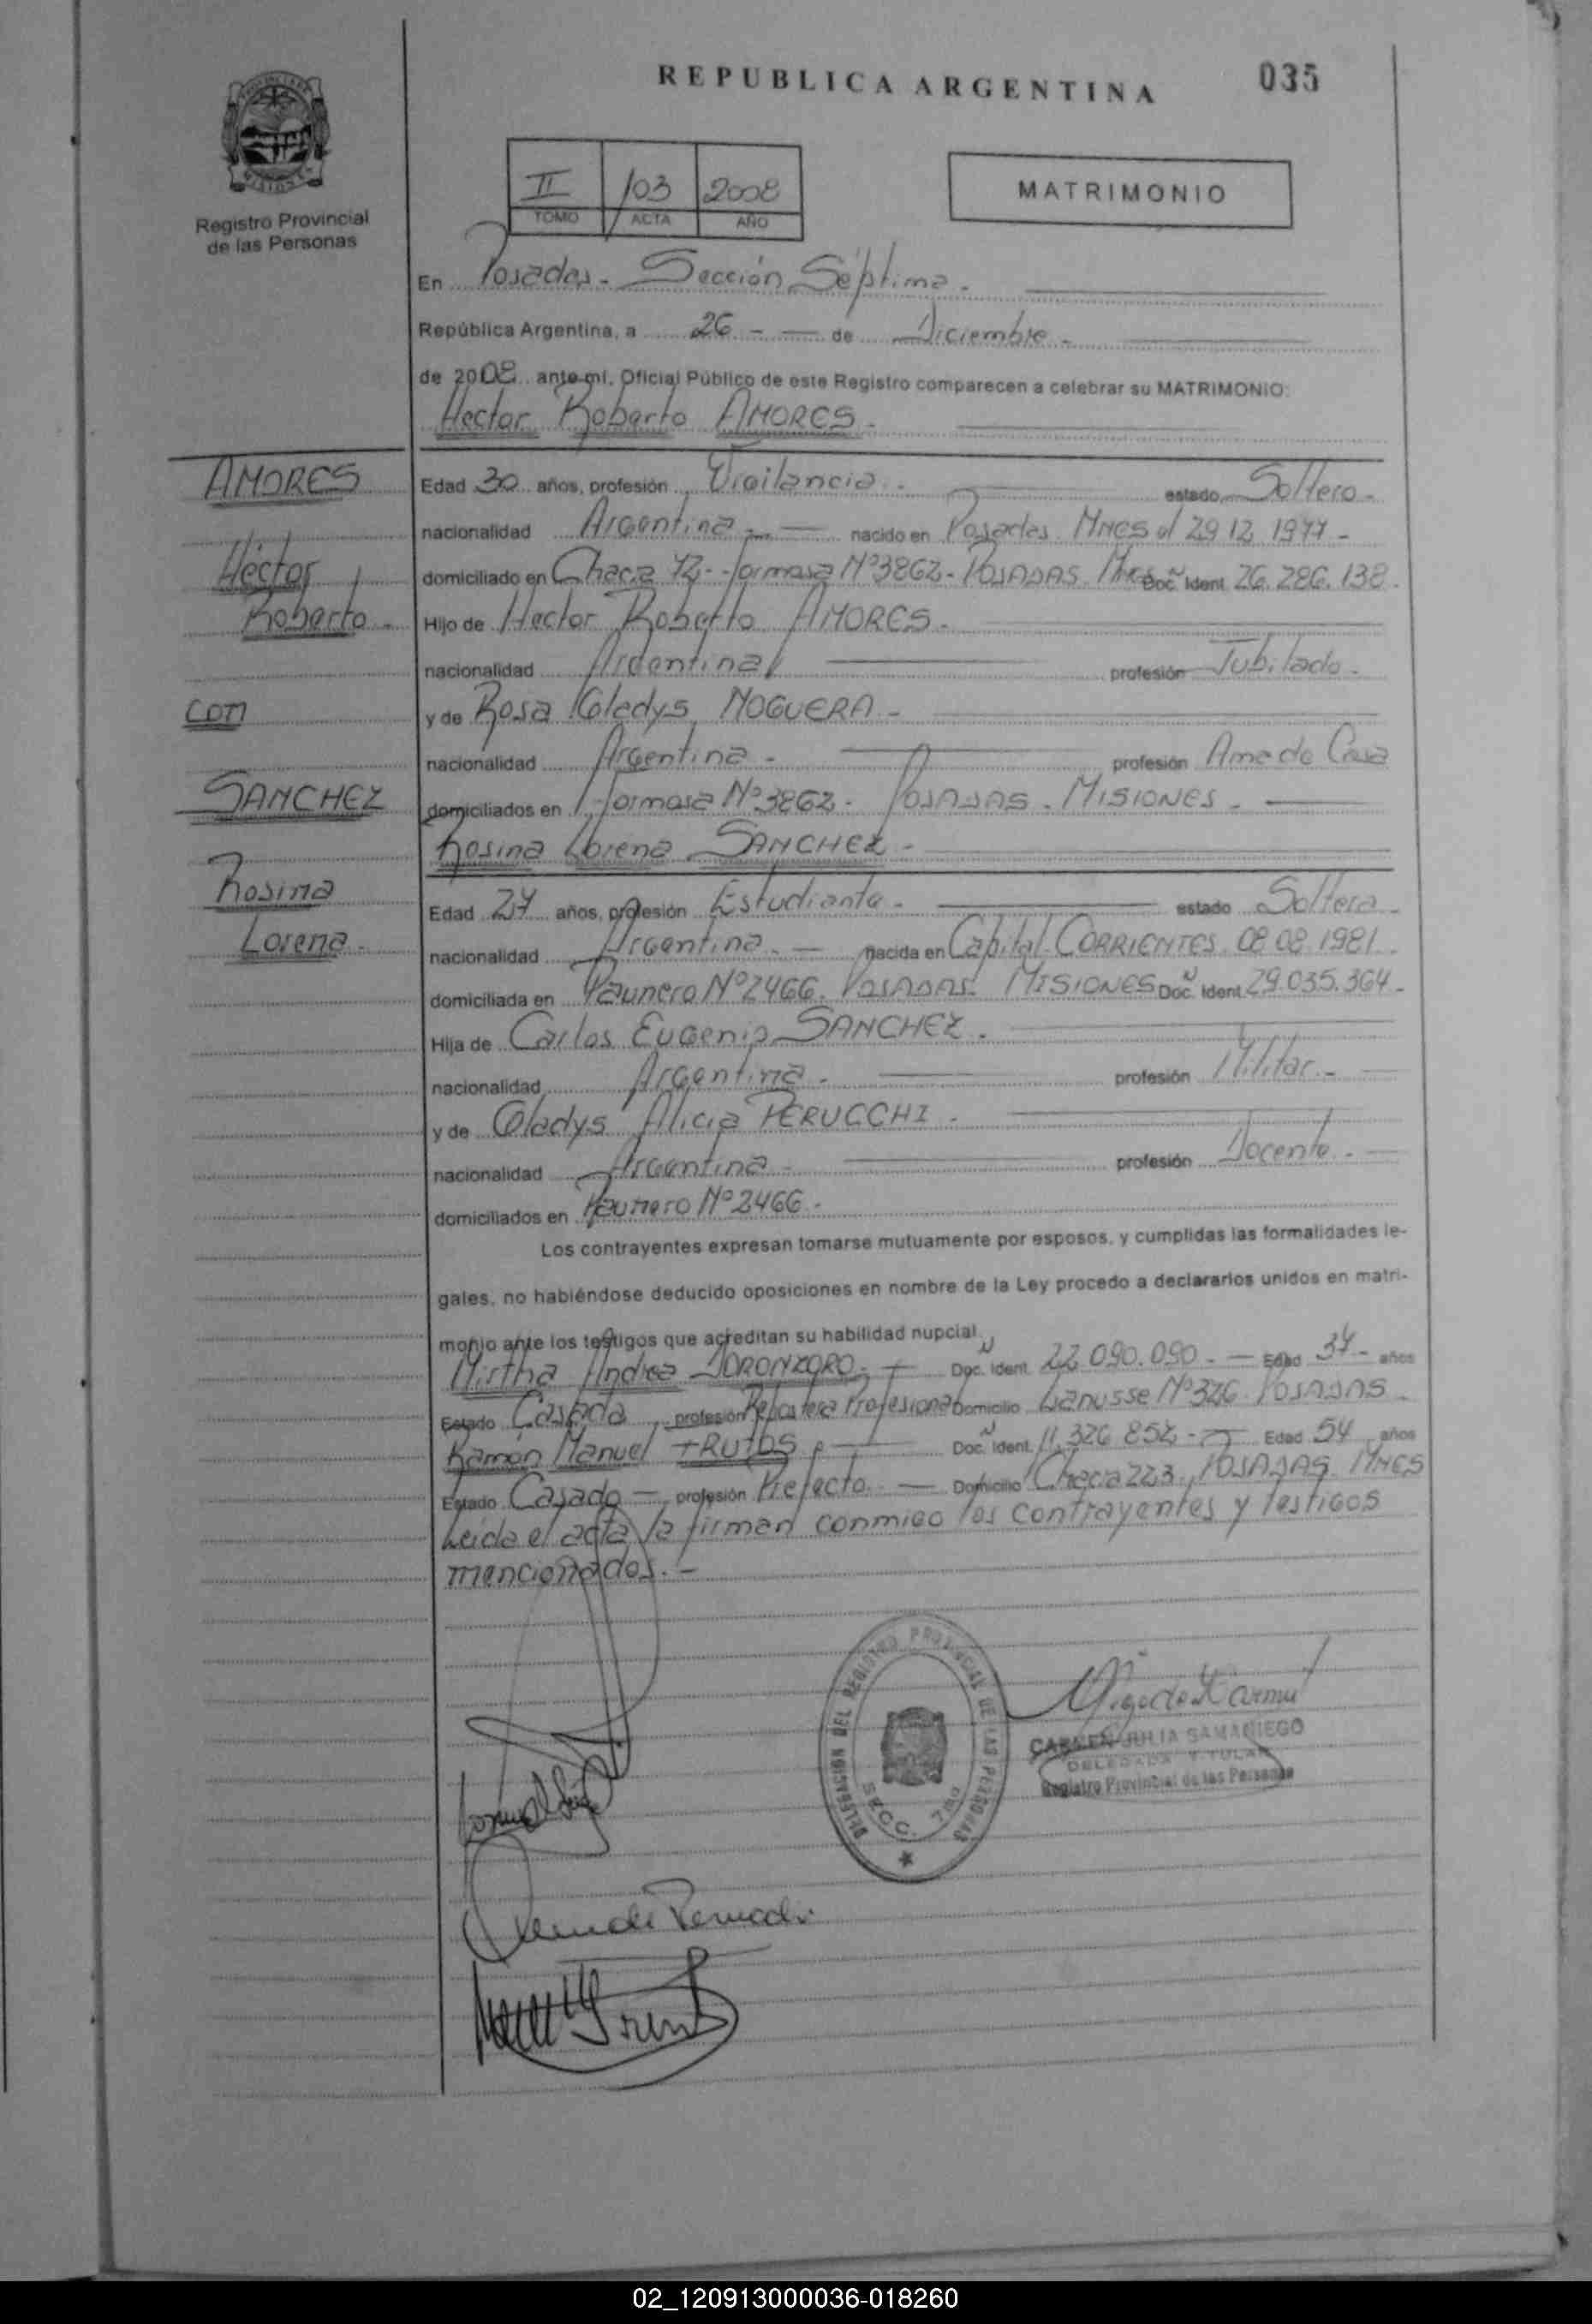 REPUBLICA ARGENTINA
035
Registro Provincial
de las Personas
II 103 2008
TOMO ACTA AÑO
MATRIMONIO
En Posadas - Sección Séptima -
República Argentina, a 26 - — de Diciembre -
de 2008 ante mí, Oficial Público de este Registro comparecen a celebrar su MATRIMONIO:
Hector Roberto AMORES -
AMORES
Héctor
Roberto -
con
SANCHEZ
Rosina
Lorena -
Edad 30 años, profesión Vigilancia - estado Soltero -
nacionalidad Argentina - — nacido en Posadas Mnes el 29 12 1977 -
domiciliado en Chacra 72 - Formosa Nº 3862 - POSADAS Mnes Doc. Ident. 26.286.138
Hijo de Hector Roberto AMORES -
nacionalidad Argentina profesión Jubilado -
y de Rosa Gladys NOGUERA -
nacionalidad Argentina - profesión Ama de Casa
domiciliados en Formosa Nº 3862 - POSADAS - MISIONES -
Rosina Lorena SANCHEZ -
Edad 27 años, profesión Estudiante - estado Soltera -
nacionalidad Argentina - — nacida en Capital - CORRIENTES 08 08 1981
domiciliada en Paunero Nº 2466 - POSADAS MISIONES Doc. Ident. 29.035.364 -
Hija de Carlos Eugenio SANCHEZ -
nacionalidad Argentina - profesión Militar -
y de Gladys Alicia PERUCCHI -
nacionalidad Argentina - profesión Docente -
domiciliados en Paunero Nº 2466 -
Los contrayentes expresan tomarse mutuamente por esposos, y cumplidas las formalidades le-
gales, no habiéndose deducido oposiciones en nombre de la Ley procedo a declararlos unidos en matri-
monio ante los testigos que acreditan su habilidad nupcial
Mirtha Andrea DORONZORO - Doc. Ident. 22.090.090 - — Edad 37 - años
Estado Casada profesión Repostera Profesional Domicilio Lanusse Nº 326 POSADAS
Ramón Manuel Doc. Ident. 11.326.852 - Edad 54 años
Estado Casado — profesión Prefecto — Domicilio Chacra 223 POSADAS MNES
Leida el acta la firman conmigo los contrayentes y testigos
mencionados. -
DELEGACION DEL REGISTRO PROVINCIAL DE LAS PERSONAS
SECC. 7ma
CARMEN JULIA SAMANIEGO
DELEGADA TITULAR
Registro Provincial de las Personas
02_120913000036-018260